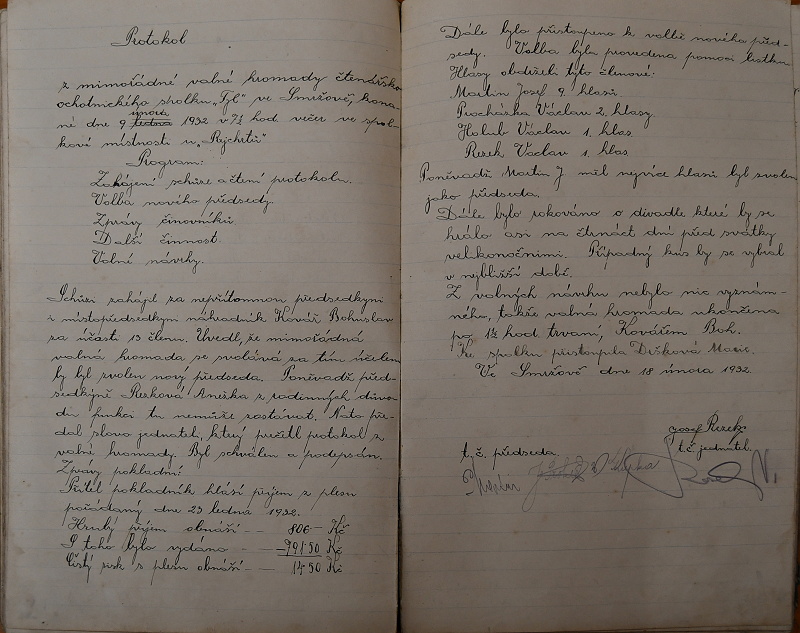 Protokol
z mimořádné valné hromady čtenářsko
ochotnického spolku „Tyl" ve Smržově, kona-
února
né dne 9 ledna 1932 v 7½ hod. večer ve spol-
kové místnosti u „Rejchrtů"
Program:
Zahájení schůze a čtení protokolu.
Volba nového předsedy.
Zprávy činovníků
Další činnost.
Volní návrhy.
Schůzi zahájil za nepřítomnou předsedkyni
i místopředsedkyni náhradník Kovář Bohuslav
za účasti 13 členů. Uvedl, že mimořádná
valná hromada se svolává za tím účelem
by byl zvolen nový předseda. Poněvadž před-
sedkyně Rezková Anežka z rodinných důvo-
dů funkci tu nemůže zastávat. Nato pře-
dal slovo jednateli, který přečtl protokol z
valné hromady. Byl schválen a podepsán.
Zprávy pokladní:
Přítel pokladník hlásí příjem z plesu
pořádaný dne 23 ledna 1932.
Hrubý příjem obnáší — 806 — Kč
S toho bylo vydáno — — 791·50 Kč
Čistý zisk s plesu obnáší — 14·50 Kč
Dále bylo přistoupeno k volbě nového před-
sedy. Volba byla provedena pomocí lístků
Hlasy obdrželi tyto členové:
Martin Josef 9. hlasů.
Procházka Václav 2. hlasy
Holub Václav 1. hlas
Rezek Václav 1. hlas
Poněvadž Martin J. měl nejvíce hlasů byl zvolen
jako předseda.
Dále bylo rokováno o divadle které by se
hrálo asi na čtrnáct dní před svátky
velikonočními. Případný kus by se vybral
v nejbližší době.
Z volných návrhů nebylo nic význám-
ného, takže valná hromada ukončena
po 1½ hod. trvání, Kovářem Boh.
Ke spolku přistoupila Dušková Marie.
Ve Smržově dne 18 února 1932.
Josef Rezek
t. č. předseda. t. č. jednatel.